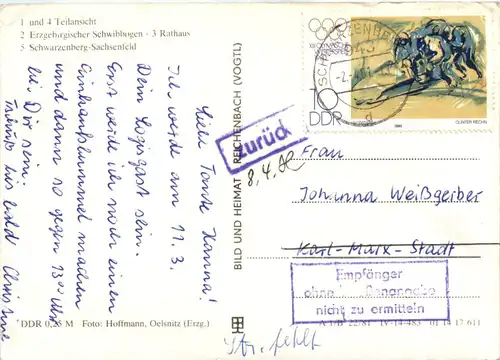 1 und 4 Teilansicht
2 Erzgebirgischer Schwibbogen - 3 Rathaus
5 Schwarzenberg-Sachsenfeld
Liebe Tante Hanna!
Ich werde am 11. 3.
Dein Logisgast sein.
Erst werde ich noch einen
Einkaufsbummel machen
und dann so gegen 13 00 Uhr
bei Dir sein.
Tschüß bis bald Christine
DDR 0,25 M Foto: Hoffmann, Oelsnitz (Erzg.)
BILD UND HEIMAT REICHENBACH (VOGTL)
A 1/B 22/81 IV-14-483 01 14 17 611
10
DDR
1980
GÜNTER RECHN
SCHWARZENBERG
zurück
8.4.82
Frau
Johanna Weißgerber
Karl-Marx-Stadt
Empfänger
nicht zu ermitteln
Str. fehlt